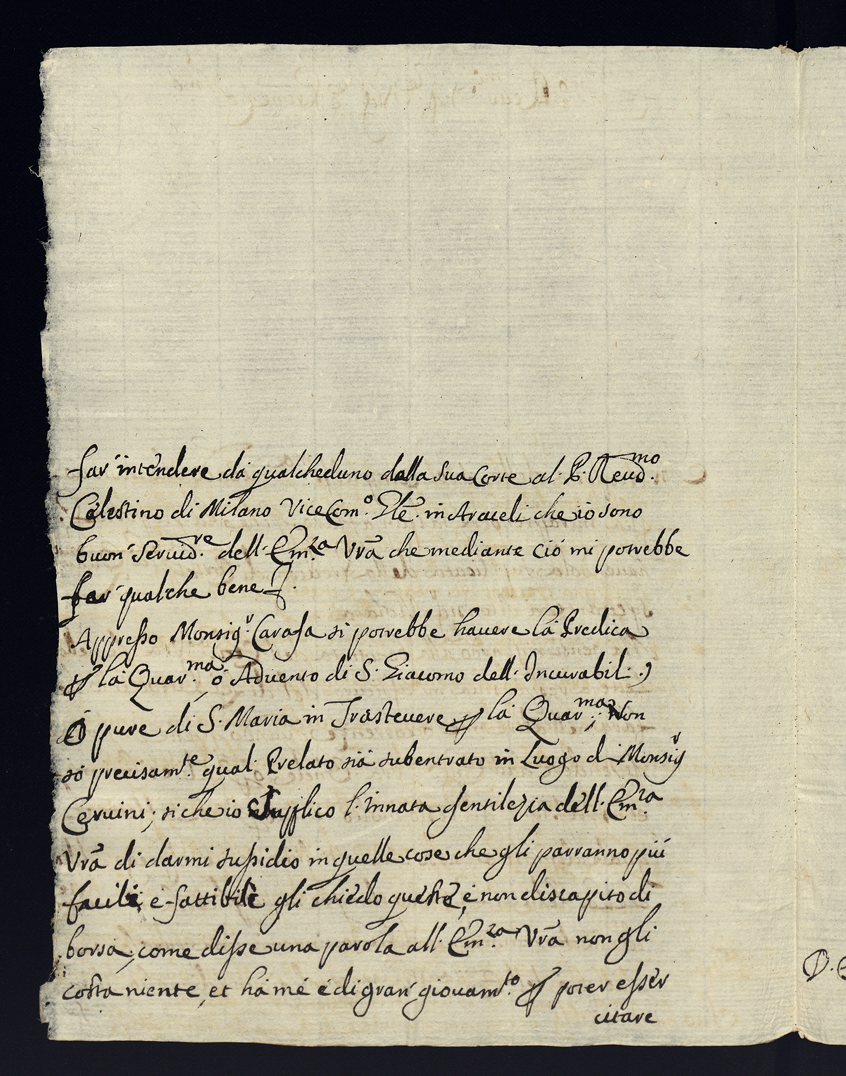 far' intendere da qualcheduno dalla sua Corte al P. Reud.mo
Celestino di Milano Vice Com.o Gle. in Araceli che io sono
buon' Seruid.re dell. Em.za Vrã che mediante ció mi potrebbe
far' qualche bene
Appresso Monsig.r Carafa si potrebbe hauere la Predica
ꝑ la Quar.ma, ó Aduento di S. Giacomo dell. Incurabil.
ó pure di S. Maria in Trasteuere ꝑ la Quar.ma; Non
só precisam.te qual Prelato sia subentrato in Luogo di Monsig.r
Ceruini; si che io supplico l. innata gentilezza dell. Em.za
Vrã di darmi sussidio in quelle cose che gli parranno piú
facili, e fattibili gli chiedo questo, é non discapito di
borsa, come disse una parola all. Em.za Vrã non gli
costa niente, et há mé é di gran' giouam.to ꝑ poter esser
citare